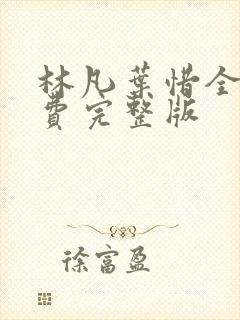 林凡葉惜全
費完整版
徐富盈